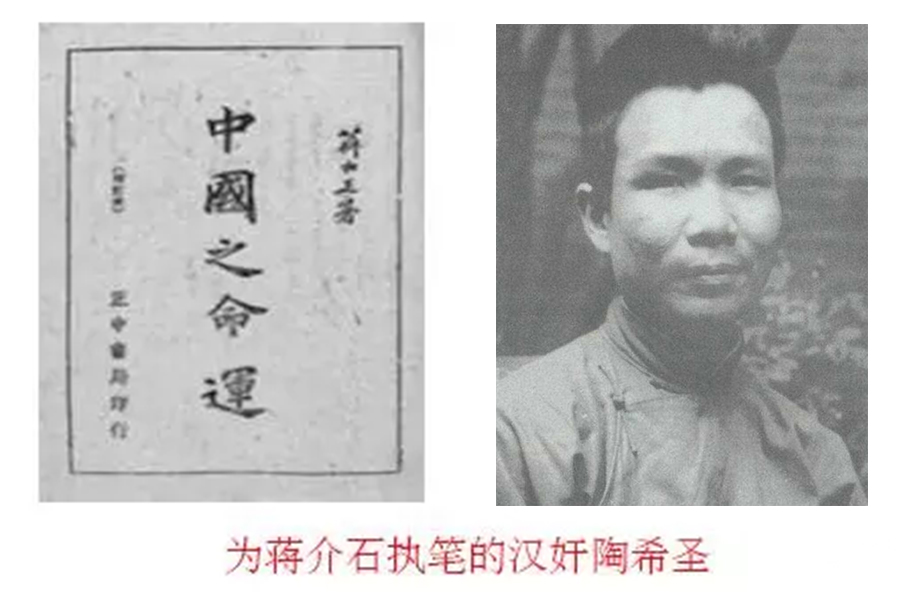 蔣中正著
中國之命運
正中書局印行
为蒋介石执笔的汉奸陶希圣